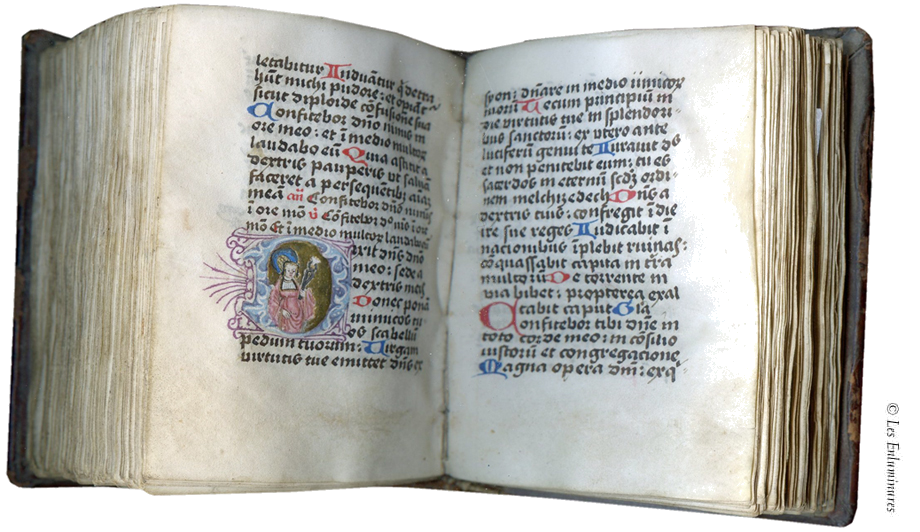 letabitur Induātur q̄ detra
hūt michi pudore: et opiāt̄
sicut diploide cōfusione sua
Confitebor dn̄o nimis in
ore meo: et ī medio multoꝝ
laudabo eū Quia astitit a
dextris pauperis ut saluā
faceret a persequētibꝫ aīaꝫ
meā añ Confitebor dn̄o nimis
ī ore mō v̄ Cōfitebor dº nīs ī ore
mō Et ī medio multoꝝ laudabo
Dixit dn̄s dn̄o
meo: sede a
dextris meis
Donec ponā
inimicos tu-
os scabellū
pedum tuorum: Uirgam
virtutis tue emittet dn̄s ex
syon: dn̄are in medio īimicoꝝ
tuoꝝ Tecum principiū in
die virtutis tue in splendori-
bus sanctorū: ex vtero ante
luciferū genui te Iurauit dn̄s
et non penitebit eum: tu es
sacerdos in eternū scd̄ꝫ ordi-
nem melchizedech Dn̄s a
dextris tuis: confregit ī die
ire sue reges Iudicabit ī
nacionibus īplebit ruinas:
cōquassabit capita in t̄ra
multoꝝ De torrente in
via bibet: propterea exal
tabit caput Glā
Confitebor tibi dn̄e in
toto corde meo: in cōsilio
iustorū et congregacione
Magna opera dn̄i: exq̄
© Les Enluminures